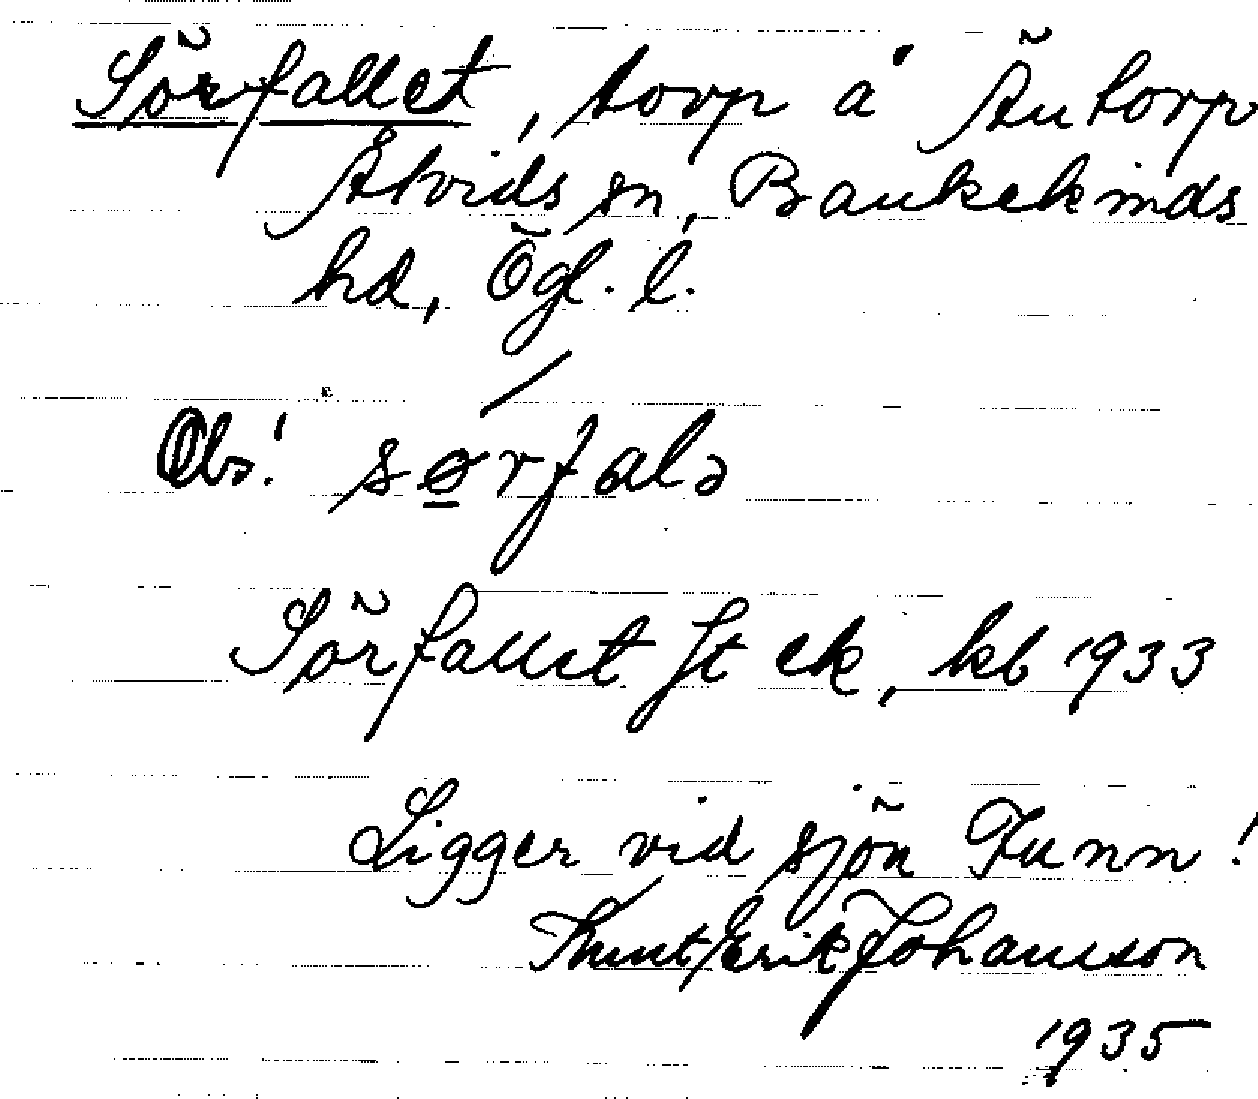 Sörfallet, torp å Äntorp
Åtvids sn, Bankekinds
hd, Ögl. l.
Obs! sørfalə
Sörfallet Jt ek, kb 1933
Ligger vid sjön Funn!
Knut Erik Johansson
1935